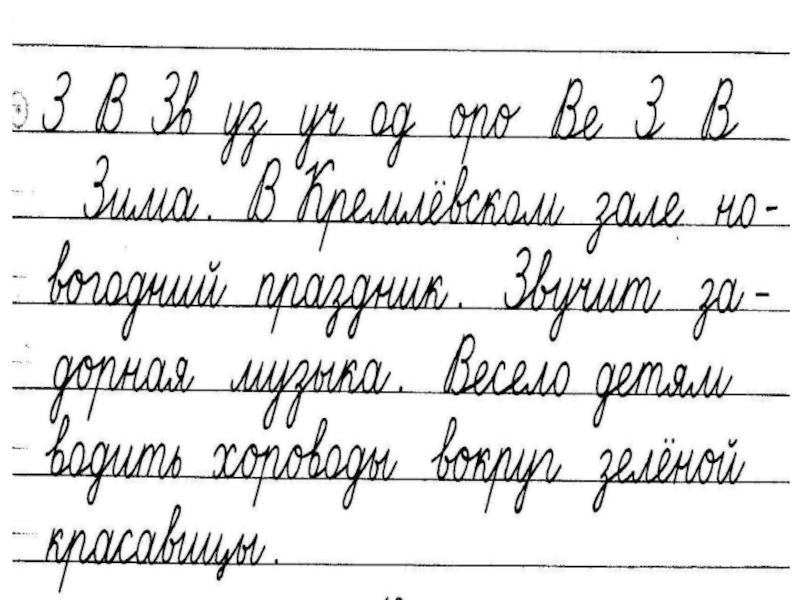 З В Зв уз уч од оро Ве З В
Зима. В Кремлёвском зале но-
вогодний праздник. Звучит за-
дорная музыка. Весело детям
водить хороводы вокруг зелёной
красавицы.